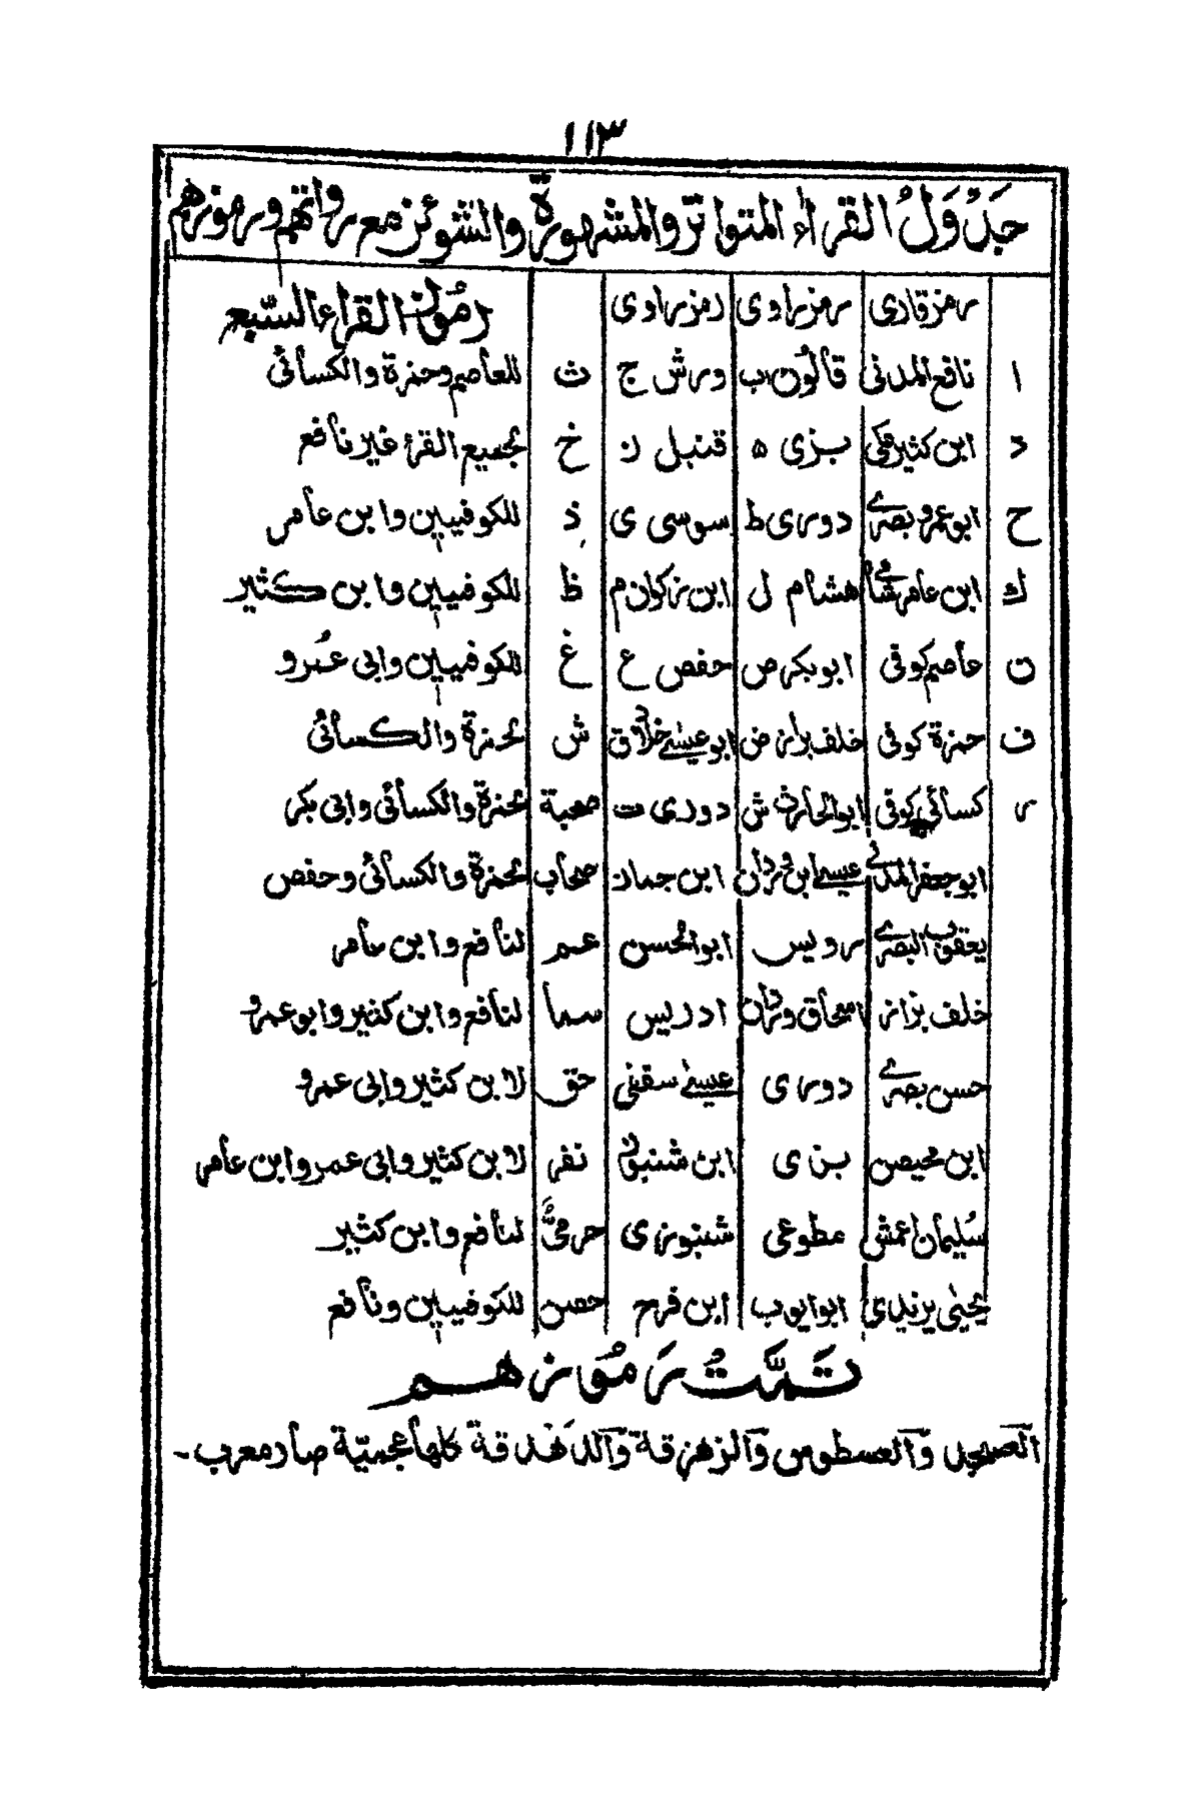 ١١٣
جَدْوَلُ القراء المتواترة والمشهورة والشوائذ مع رواتهم ورموزهم
رمز قاری رمز راوی رمز راوی رموز القراء السبعه
ا نافع المدنی قالون ب ورش ج ث للعاصم وحمزة والکسائی
د ابن کثیر مکی بزی ه قنبل ز خ لجمیع القرء غیر نافع
ح ابو عمرو بصری دوری ط سوسی ی ذ للکوفیین وابن عامر
ك ابن عامر شامی هشام ل ابن زکوان م ظ للکوفیین وابن کثیر
ن عاصم کوفی ابوبکر ص حفص ع غ للکوفیین وابی عمرو
ف حمزة کوفی خلف بزاز ض ابو عیسی خلاد ق ش لحمزة والکسائی
ر کسائی کوفی ابو الحارث ش دوری ت صحبة لحمزة والکسائی وابی بکر
ابو جعفر المدنی عیسی ابن وردان ابن جماز صحاب لحمزة والکسائی وحفص
یعقوب البصری رویس ابو الحسن عم لنافع وابن عامر
خلف بزاز اسحاق وردان ادریس سما لنافع وابن کثیر وابو عمرو
حسن بصری دوری عیسی سقفی حق لابن کثیر وابی عمرو
ابن محیصن بزی ابن شنبوذ نفر لابن کثیر وابی عمر وابن عامر
سلیمان اعمش مطوعی شنبوزی حرمیٌّ لنافع وابن کثیر
یحیی یزیدی ابو ایوب ابن فرح حصن للکوفیین ونافع
تَمَّتْ رَمُوزهم
العسجد وَالعسطوس وَالزهزقة وَالدَهْدقة کلها عجمیّة صادمعرب۔